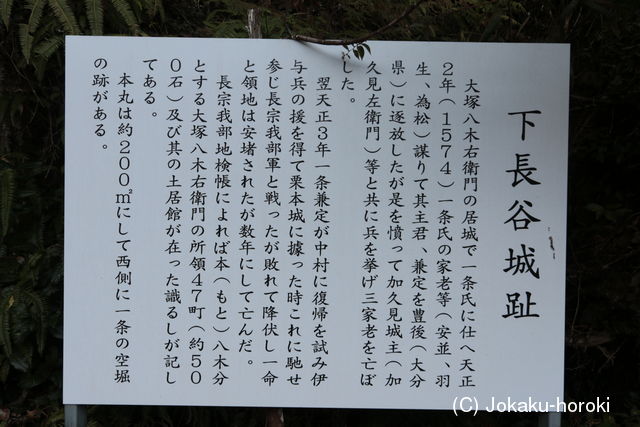 下長谷城趾
大塚八木右衛門の居城で一条氏に仕へ天正
2年(1574)一条氏の家老等(安並、羽
生、為松)謀りて其主君、兼定を豊後(大分
県)に逐放したが是を憤って加久見城主(加
久見左衛門)等と共に兵を挙げ三家老を亡ぼ
した。
翌天正3年一条兼定が中村に復帰を試み伊
与兵の援を得て栗本城に據った時これに馳せ
参じ長宗我部軍と戦ったが敗れて降伏し一命
と領地は安堵されたが数年にして亡んだ。
長宗我部地検帳によれば本(もと)八木分
とする大塚八木右衛門の所領47町(約50
0石)及び其の土居館が在った識るしが記し
てある。
本丸は約200㎡にして西側に一条の空堀
の跡がある。
(C) Jokaku-horoki